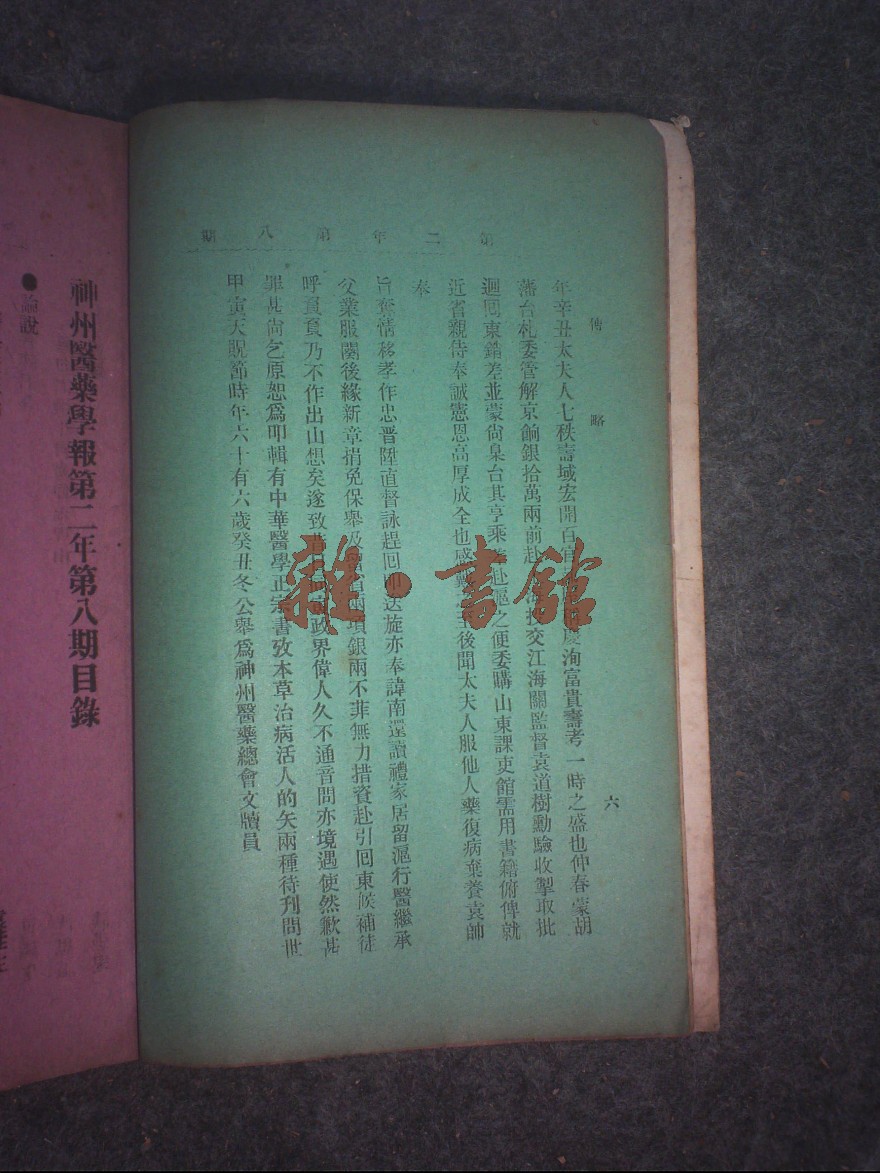 第二年第八期
傳略
六
年辛丑太夫人七秩壽域宏開百官慶洵富貴壽考一時之盛也仲春蒙胡
藩台札委管解京餉銀拾萬兩前赴投交江海關監督袁道樹勳驗收掣取批
迴回東銷差並蒙尚臬台其亨乘赴滬之便委購山東課吏館需用書籍俯俾就
近省親侍奉誠憲恩高厚成全也感後聞太夫人服他人藥復病棄養袁帥
奉
旨奪情移孝作忠晉陞直督詠趕回送旋亦奉諱南還讀禮家居留滬行醫繼承
父業服闋後緣新章捐免保舉及兩項銀兩不菲無力措資赴引回東候補徒
呼負負乃不作出山想矣遂致政界偉人久不通音問亦境遇使然歉甚
罪甚尚乞原恕為叩輯有中華醫學正宗書攷本草治病活人的矢兩種待刊問世
甲寅天貺節時年六十有六歲癸丑冬公舉為神州醫藥總會文牘員
雜·書館
神州醫藥學報第二年第八期目錄
●論說